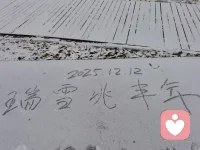 2025.12.12
瑞雪兆丰年